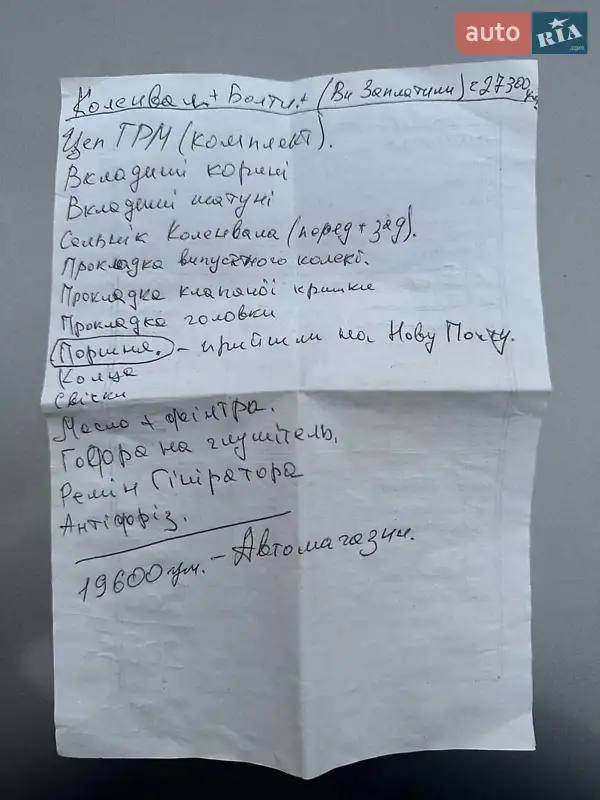 auto RIA .com
Коленвал + Болти + (Ви Заплатили) = 27300
Цеп ГРМ (комплект).
Вкладиші коріні
Вкладиші шатуні
Сальнік Коленвала (перед + зад).
Прокладка випускного колект.
Прокладка клапаної кришки
Прокладка головки
Поршня. - прийшли на Нову Почту.
Кольца
Свічки
Масло + фільтра.
Гофра на глушітель.
Ремін Гініратора
Антіфріз.
19600 грн. - Автомагазин.